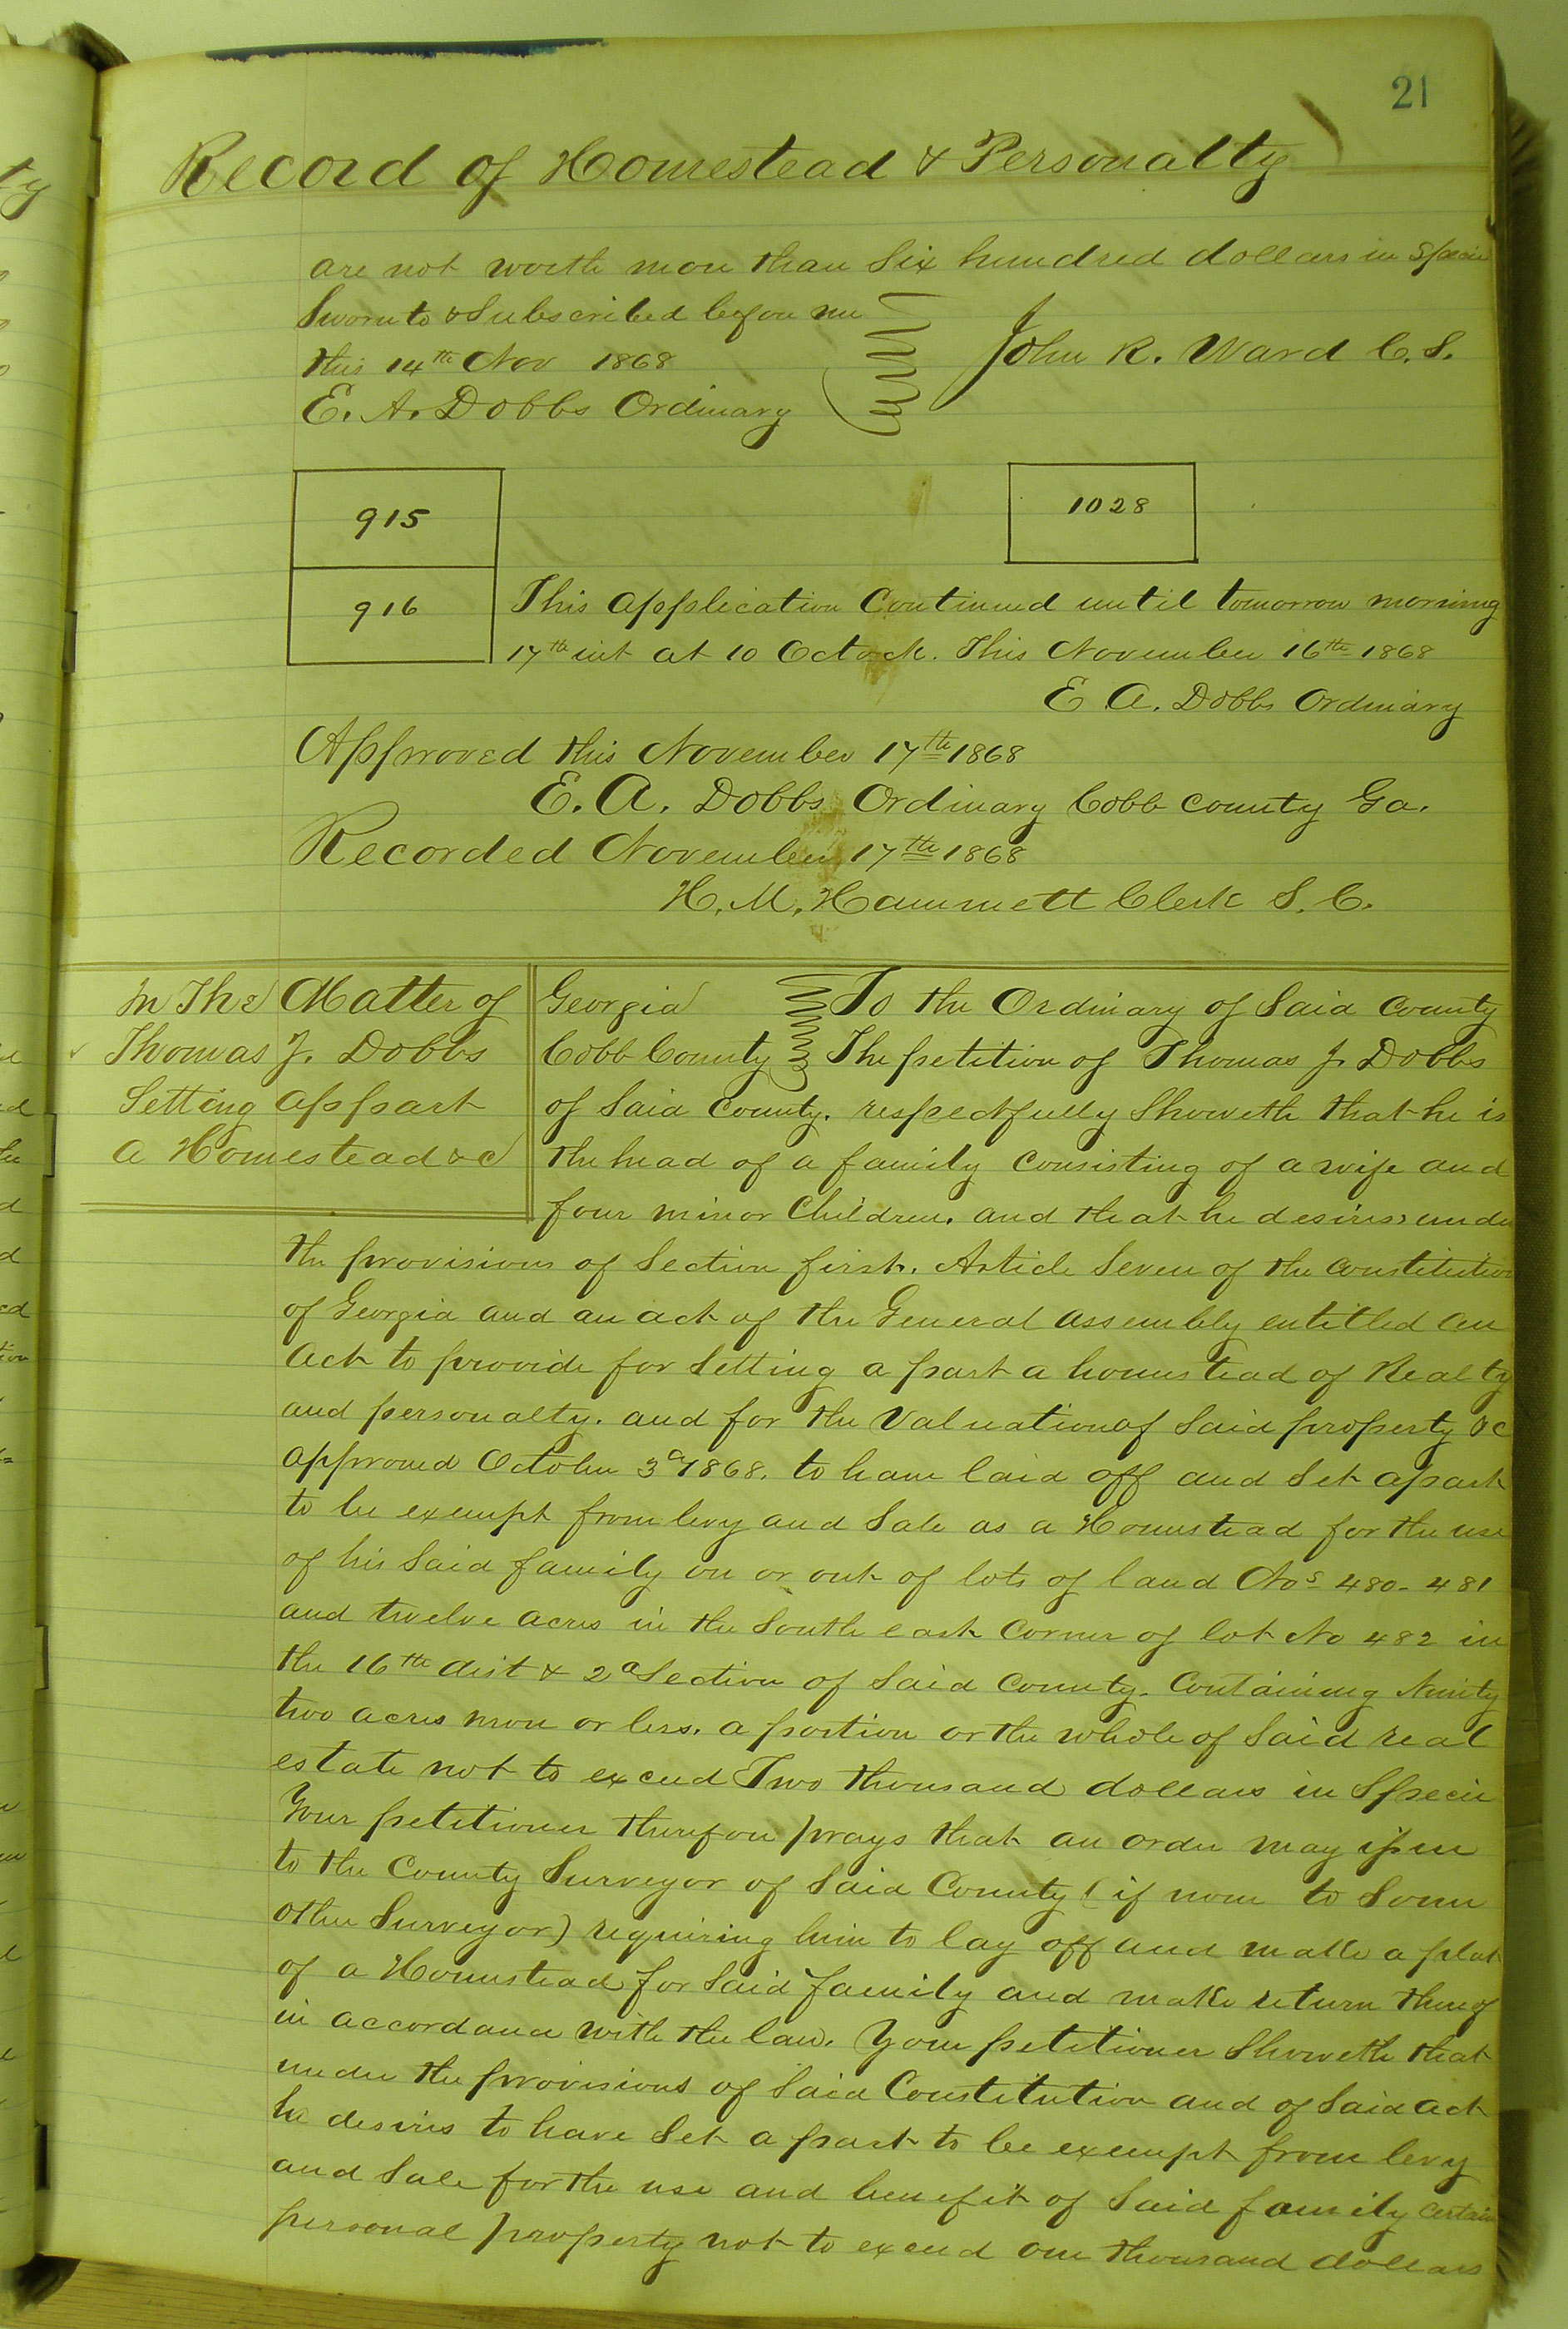 21
Record of Homestead & Personalty
are not worth more than Six hundred dollars in Specie
Sworn to & Subscribed before me
this 14th Nov 1868
E. A. Dobbs Ordinary
John R. Ward C. S.
915
1028
916
This application Continued until tomorrow morning
17th inst at 10 Oclock. This November 16th 1868
E A. Dobbs Ordinary
Approved this November 17th 1868
E. A. Dobbs Ordinary Cobb County Ga.
Recorded November 17th 1868
H. M. Hammett Clerk S. C.
In The Matter of
Thomas J. Dobbs
Setting appart
a Homestead &c
Georgia
Cobb County
To the Ordinary of Said County
The petition of Thomas J. Dobbs
of Said County. respectfully Showeth that he is
the head of a family Consisting of a wife and
four minor Children. and that he desires under
the provisions of Section first. Article Seven of the Constitution
of Georgia and an act of the General assembly entitled an
Act to provide for Setting a part a homestead of Realty
and personalty. and for the Valuation of Said property &c
approved October 3d 1868. to have laid off and Set apart
to be exempt from levy and Sale as a Homestead for the use
of his Said family on or out of lots of land Nos 480 - 481
and twelve acres in the South east Corner of lot No 482 in
the 16th dist & 2d Section of Said County. Containing Ninity
two acres more or less. a portion or the whole of Said real
estate not to exceed Two thousand dollars in Specie
Your petitioner therefore prays that an order may issue
to the County Surveyor of Said County (if none to Some
other Surveyor) requiring him to lay off and make a plat
of a Homestead for Said family and make return thereof
in accordance with the law. Your petitioner Showeth that
under the provisions of Said Constitution and of Said act
he desires to have Set a part to be exempt from levy
and Sale for the use and benefit of Said family certain
personal property not to exceed one thousand dollars